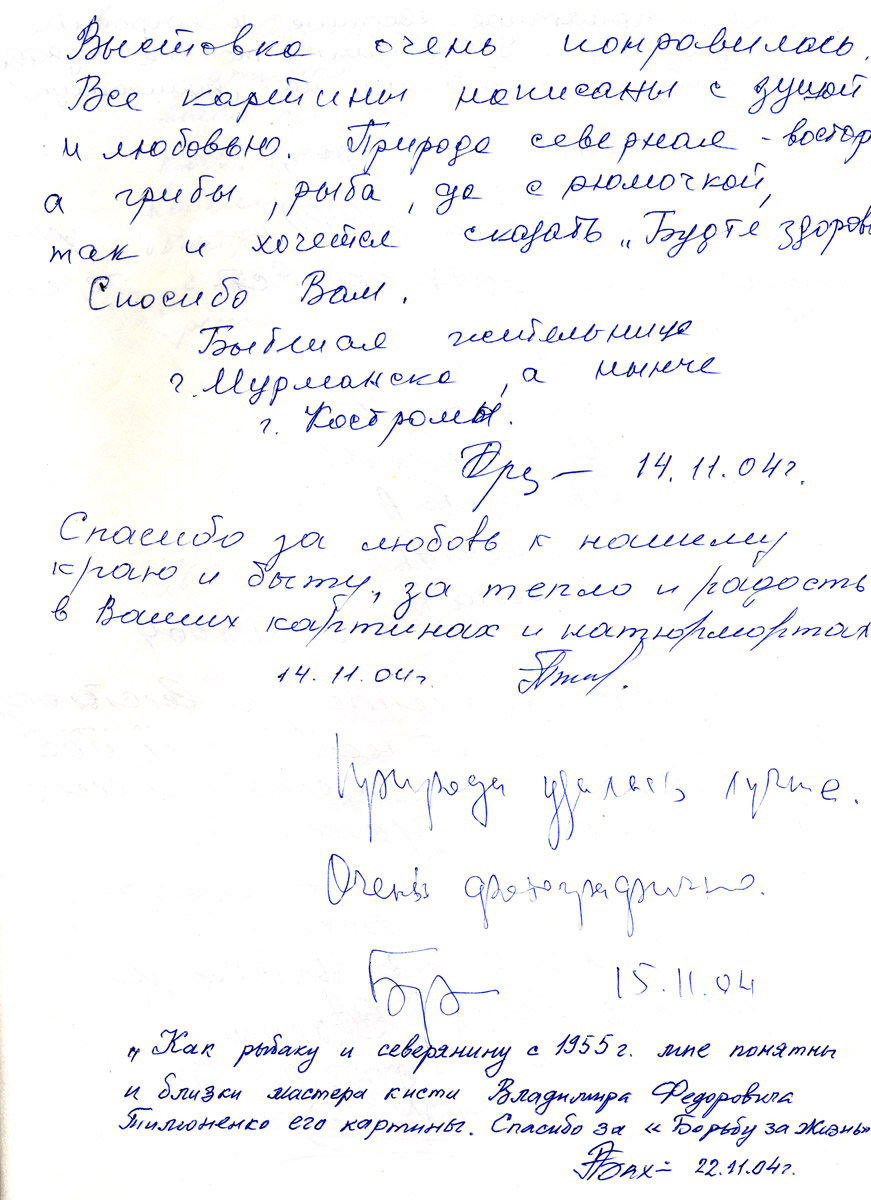 Выставка очень понравилась.
Все картины написаны с душой
и любовью. Природа северная - востор
а грибы, рыба, да с рюмочкой,
так и хочется сказать „Будте здоровы
Спасибо Вам.
Бывшая жительница
г. Мурманска, а нынче
г. Костромы.
14.11.04г.
Спасибо за любовь к нашему
краю и быту, за тепло и радость
в Ваших картинах и натюрмортах
14.11.04г.
Природа удалась лучше.
Очень фотографично.
15.11.04
„Как рыбаку и северянину с 1955г. мне понятны
и близки мастера кисти Владимира Федоровича
Тимоненко его картины. Спасибо за «Борьбу за жизнь»
22.11.04г.